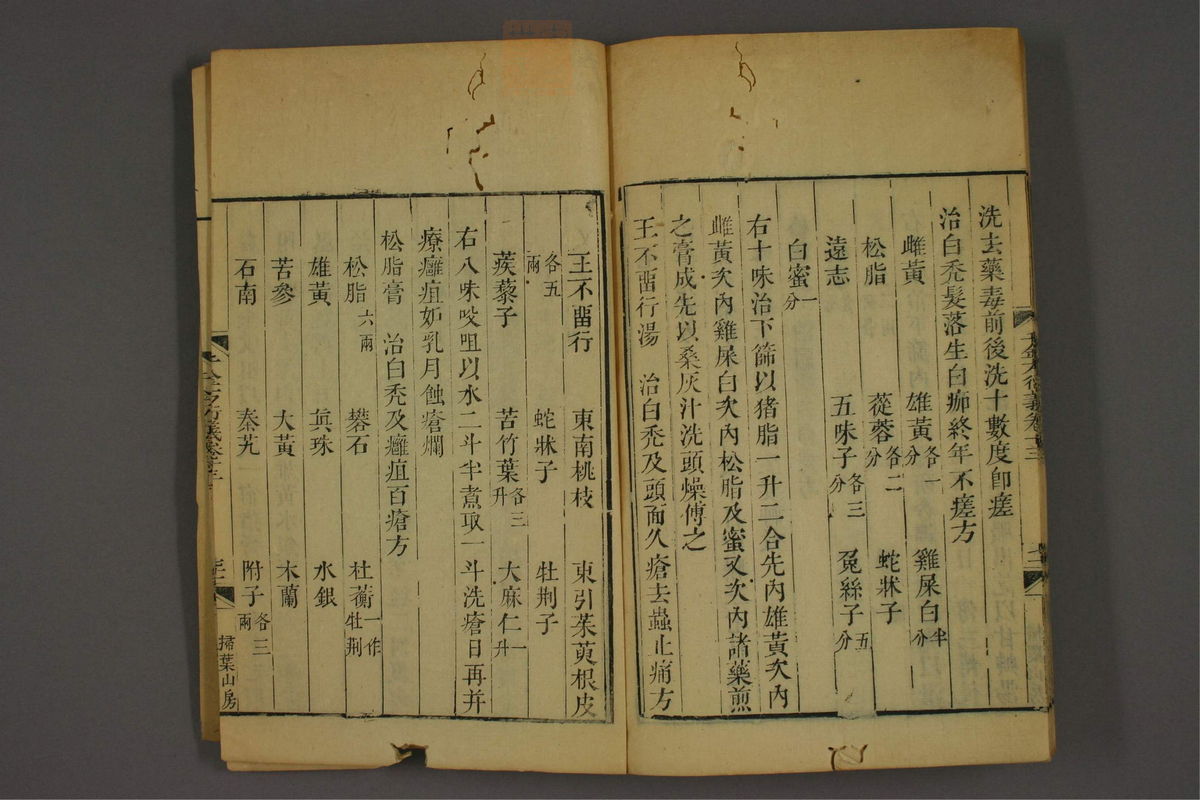 洗去藥毒前後洗十數度卽瘥
治白禿髮落生白痂終年不瘥方
雌黃 雄黃各一分 雞屎白半分
松脂 蓯蓉各二分 蛇牀子
遠志 五味子各三分 兔絲子五分
白蜜一分
右十味治下篩以猪脂一升二合先內雄黃次內
雌黃次內雞屎白次內松脂及蜜又次內諸藥煎
之膏成先以桑灰汁洗頭燥傅之
王不畱行湯 治白禿及頭面久瘡去蟲止痛方
王不畱行 東南桃枝 東引茱萸根皮
各五兩 蛇牀子 牡荆子
蒺藜子 苦竹葉各三升 大麻仁一升
右八味㕮咀以水二斗半煮取一斗洗瘡日再并
療癰疽妒乳月蝕瘡爛
松脂膏 治白禿及癰疽百瘡方
松脂六兩 礬石 杜蘅一作牡荆
雄黃 眞珠 水銀
苦參 大黃 木蘭
石南 秦艽 附子各三兩
掃葉山房